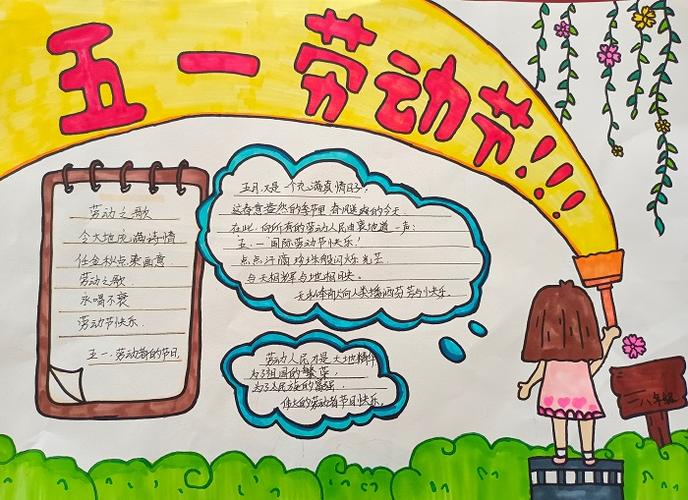 五一劳动节!!!
劳动之歌
令大地充满诗情
任金秋点染画意
劳动之歌
永唱不衰
劳动节快乐
五一·劳动者的节日
五月,又是一个充满真情日子,
这春意盎然的季节里 春风送爽的今天
在此,向所有的劳动人民由衷地道一声:
五.一国际劳动节快乐!
点点汗滴 珍珠般闪烁光芒
与天相辉 与地相映。
劳动人民才是大地精华
为了祖国的繁荣,
为了人民族的富强,
伟大的劳动者节日快乐。
八年级